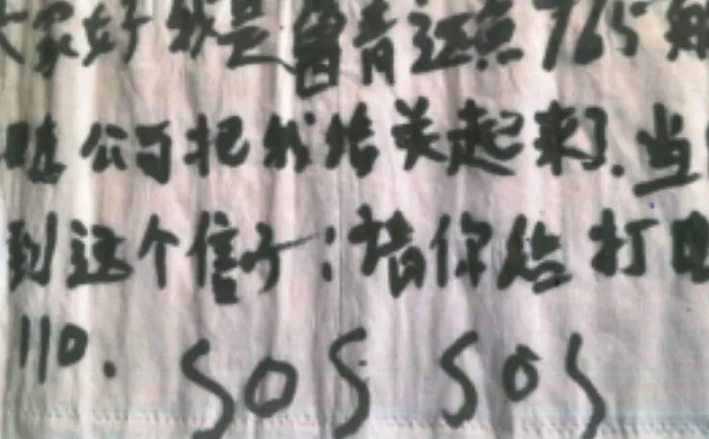 大家好我是鲁青远渔765船
公司把我给关起来了.当
到这个信子:请你给打电
110. SOS SOS